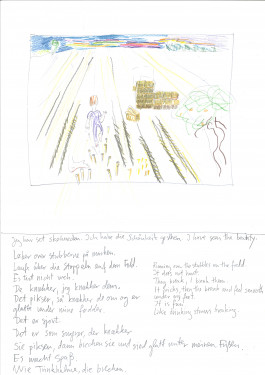 Jeg har set skønheden. Ich habe die Schönheit gesehen. I have seen the beauty.
Løber over stubbene på marken.
Laufe über die Stoppeln auf dem Feld.
Es tut nicht weh.
De knækker, jeg knækker dem.
Det pikser, så knækker de om og er
glatte under mine fødder.
Det er sjovt.
Det er som sugerør, der knækker
Sie piksen, dann brechen sie und sind glatt unter meinen Füßen.
Es macht Spaß.
Wie Trinkhalme, die brechen.
Running over the stubbles on the field
It does not hurt.
They break, I break them.
It pricks, then they break and feel smooth
under my feet
It is fun
Like drinking straws breaking.